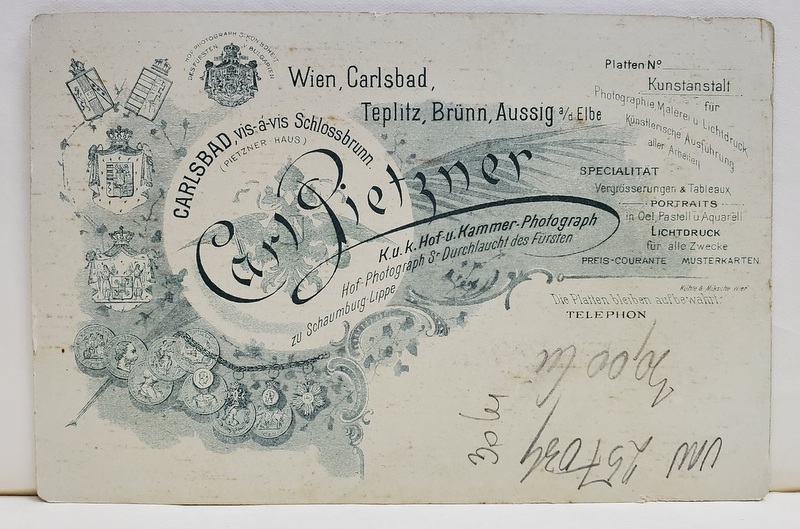 HOF-PHOTOGRAPH S. KÖN. HOHEIT
DES FÜRSTEN V. BULGARIEN
Wien, Carlsbad,
Teplitz, Brünn, Aussig a/d. Elbe
CARLSBAD, vis-à-vis Schlossbrunn.
(PIETZNER HAUS)
Carl Pietzner
K.u.k. Hof-u. Kammer-Photograph
Hof-Photograph Sr Durchlaucht des Fürsten
zu Schaumburg-Lippe
Platten No
Kunstanstalt
für
Photographie, Malerei u. Lichtdruck
Künstlerische Ausführung
aller Arbeiten
SPECIALITÄT
Vergrösserungen & Tableaux
PORTRAITS
in Oel, Pastell u. Aquarell
LICHTDRUCK
für alle Zwecke
PREIS-COURANTE MUSTERKARTEN
Die Platten bleiben aufbewahrt.
TELEPHON